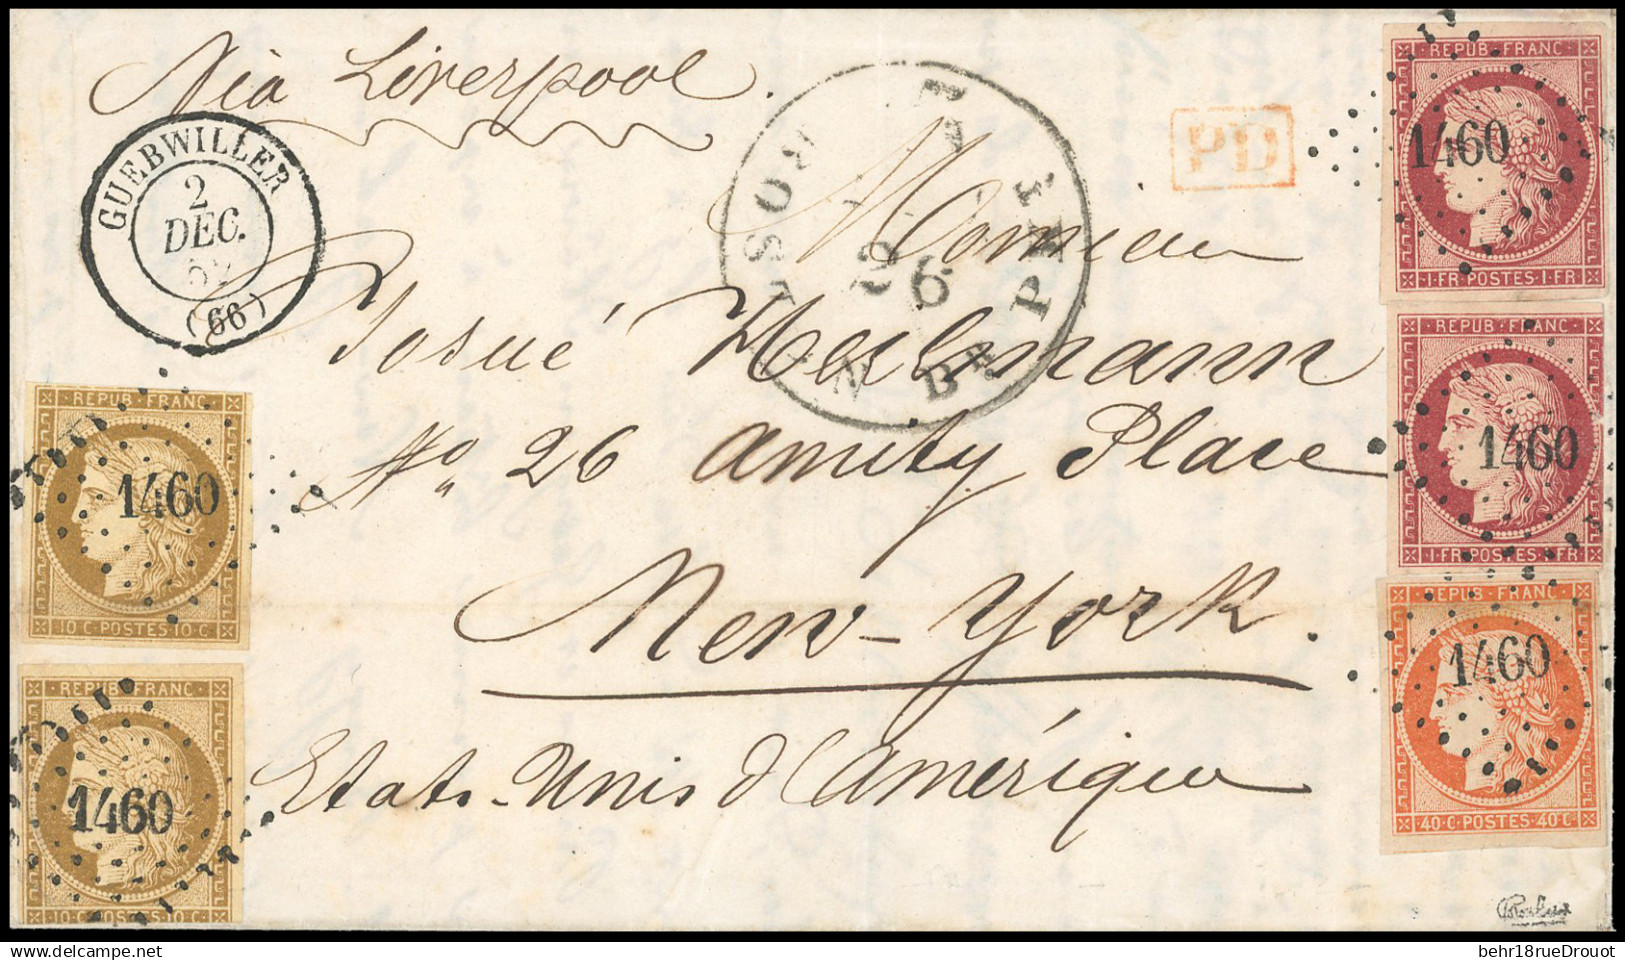 Via Liverpool.
GUEBWILLER
2
DEC.
52
(66)
PD
26
Monsieur
Josué Heilmann
No. 26 Amity Place
New-York.
Etats-Unis d'Amérique
REPUB FRANC
1460
1·FR·POSTES·1·FR
REPUB FRANC
1460
1·FR·POSTES·1·FR
REPUB FRANC
1460
40·C·POSTES·40·C
REPUB FRANC
1460
10·C·POSTES·10·C
REPUB FRANC
1460
10·C·POSTES·10·C
www.delcampe.net
behr18rueDrouot